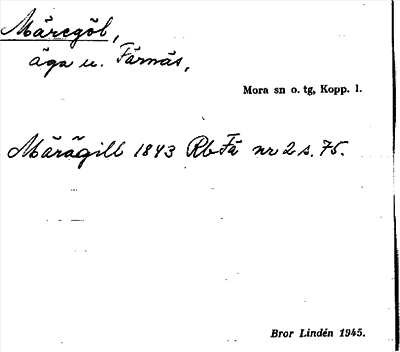 Märegöl,
äga u. Färnäs,
Mora sn o. tg, Kopp. l.
Märägill 1843 Rb Fä nr 2 s. 75.
Bror Lindén 1945.